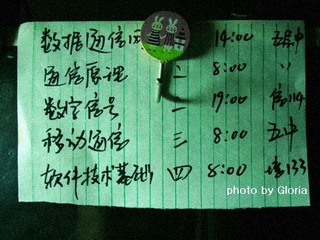 数据通信 14:00 五中
通信原理 二 8:00 〃
数字信号 二 19:00 信114
移动通信 三 8:00 五中
软件技术基础 四 8:00 信133
photo by Gloria